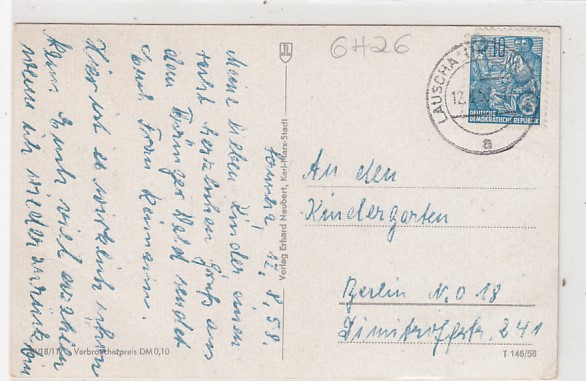 Lauscha, 12.8.58.
Meine lieben Kinder einen
recht herzlichen Gruß aus
dem Thüringer Wald sendet
Euch Frau Reimann.
Hier ist es wirklich schön
kann Euch viel erzählen
wenn ich wieder zurück bin
Verbraucherpreis DM 0,10
Verlag Erhard Neubert, Karl-Marx-Stadt
6426
LAUSCHA
12.
a
10
DEUTSCHE
DEMOKRATISCHE REPUBLIK
An den
Kindergarten
Berlin N.O 18
Dimitroffstr. 241
T 146/58